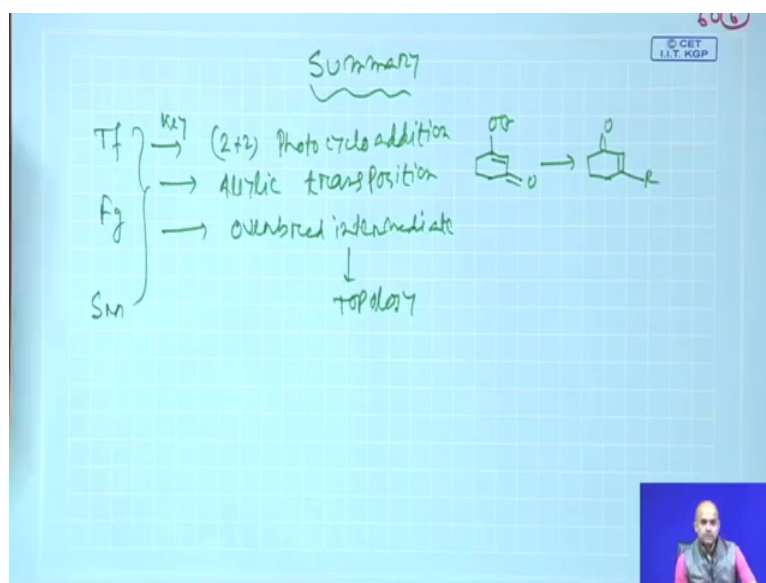 © CET
I.I.T. KGP
Summary
Tf Key → (2+2) Photocycloaddition
→ Allylic transposition
Fg → overbred intermediate
Sm ↓
topology
OR O → O R